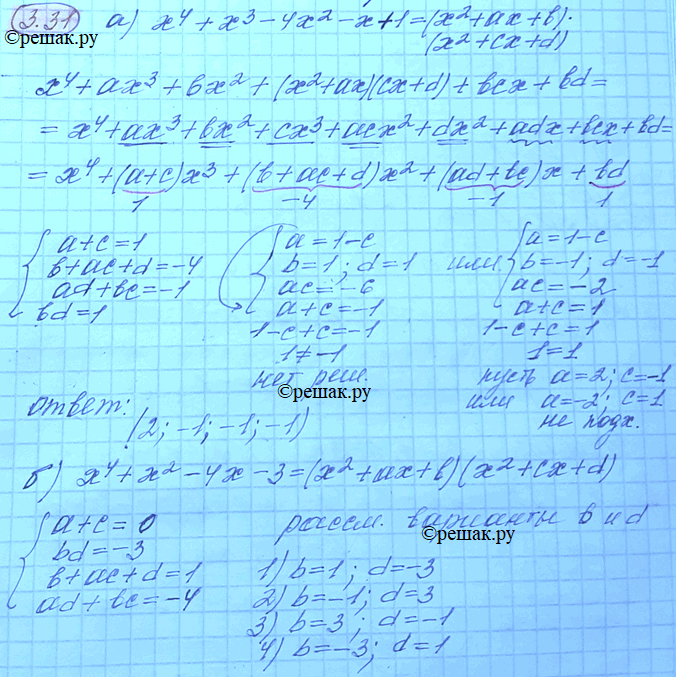 3.31 а) x⁴ + x³ − 4x² − x + 1 = (x² + ax + b)·
(x² + cx + d)
©решак.ру
x⁴ + ax³ + bx² + (x² + ax)(cx + d) + bcx + bd =
= x⁴ + ax³ + bx² + cx³ + acx² + dx² + adx + bcx + bd =
= x⁴ + (a+c)x³ + (b + ac + d)x² + (ad + bc)x + bd
1 −4 −1 1
a + c = 1
b + ac + d = −4
ad + bc = −1
bd = 1
a = 1 − c
b = 1; d = 1
ac = −6
a + c = −1
1 − c + c = −1
1 ≠ −1
нет реш.
или
a = 1 − c
b = −1; d = −1
ac = −2
a + c = 1
1 − c + c = 1
1 = 1
пусть a = 2; c = −1
или a = −2; c = 1
не подх.
©решак.ру
ответ:
(2; −1; −1; −1)
б) x⁴ + x² − 4x − 3 = (x² + ax + b)(x² + cx + d)
a + c = 0
bd = −3
b + ac + d = 1
ad + bc = −4
рассм. варианты b и d
©решак.ру
1) b = 1; d = −3
2) b = −1; d = 3
3) b = 3; d = −1
4) b = −3; d = 1